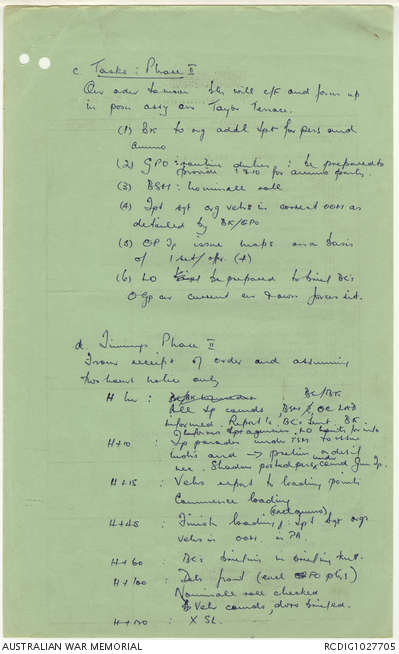 c. Tasks : Phase II
On order to move bty will c/k and form up
in posn assy area Taylor Terrace.
(1) BK to org addl tpt for pers and
ammo
(2) GPO : routine duties : be prepared to
provide 1 & 10 for ammo party.
(3) BSM : nominal roll
(4) Tpt sgt org vehs in correct OOM as
detailed by BK/GPO
(5) OP Tp issue maps on a basis
of 1 set/offr. (4)
(6) LO be prepared to brief BC's
O Gp on current en & own forces sit.
d. Timings Phase II
From receipt of order and assuming
two hours notice only
H hr : BC/BK
All tp comds BSM & OC LAD
informed. Report to BC's tent. BK
informs tpt agencies, LO
H+10 : Tp parades under TSM to issue
and → prelim orders if
nec. comd Gun Tp.
H+15 : Vehs report to loading points
Commence loading
(incl ammo)
H+45 : Finish loading, tpt sgt orgs
vehs in OOM. in PA.
H+60 : BC's briefing in briefing tent.
H+100 : Dets front (excl )
Nominal roll checked
Veh comds, dvrs briefed.
X SL.
AUSTRALIAN WAR MEMORIAL
RCDIG1027705